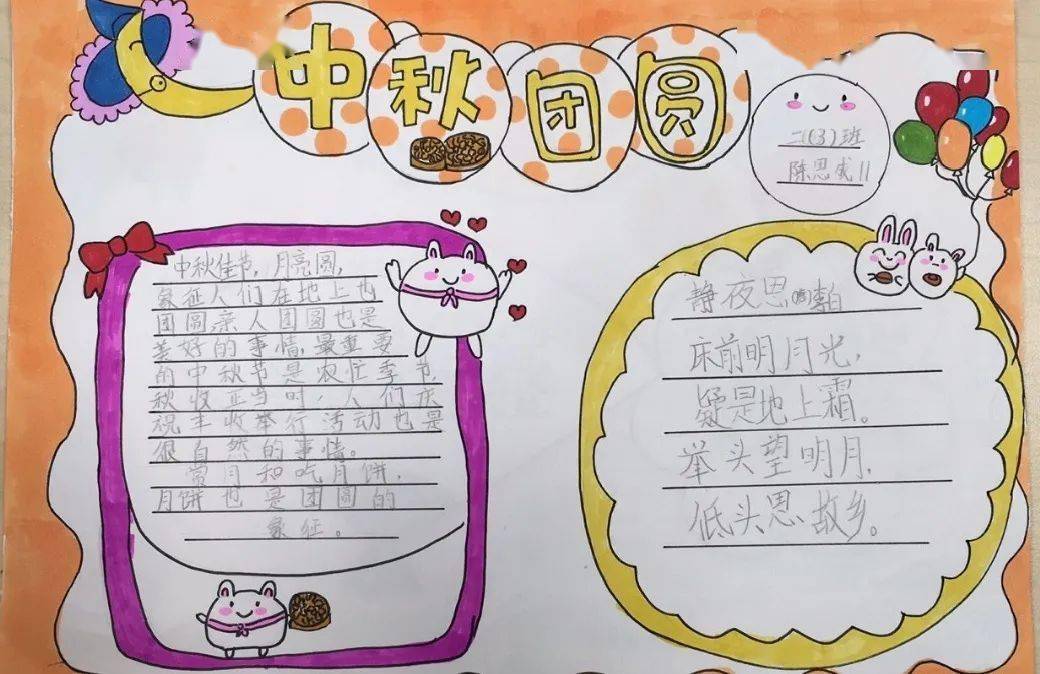 中秋团圆
二(3)班
陈思成11
中秋佳节,月亮圆,
象征人们在地上也
团圆,亲人团圆也是
美好的事情,最重要
的中秋节是农忙季节,
秋收正当时,人们庆
祝丰收举行活动也是
很自然的事情。
赏月和吃月饼,
月饼也是团圆的
象征。
静夜思 李白
床前明月光,
疑是地上霜。
举头望明月,
低头思故乡。